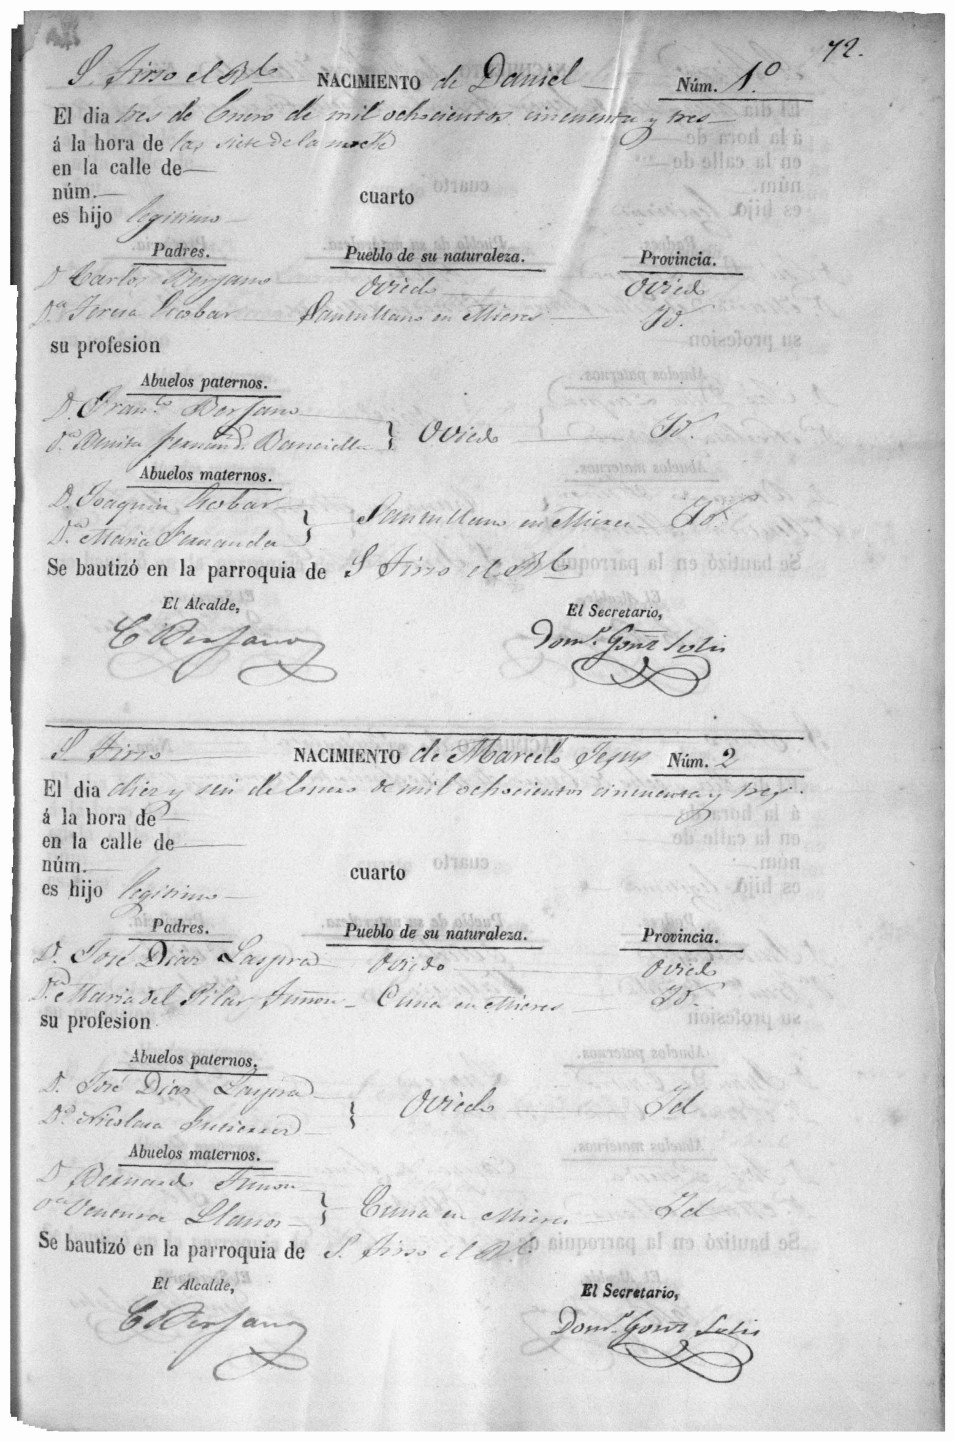 72.
S. Tirso el Rl. NACIMIENTO de Daniel Núm. 1.º
El dia tres de Enero de mil ochocientos cincuenta y tres
á la hora de las siete de la noche
en la calle de
núm. cuarto
es hijo legitimo
Padres. Pueblo de su naturaleza. Provincia.
D. Carlos Berjano Oviedo Oviedo
D.ª Teresa Escobar Santullano en Mieres Yd.
su profesion
Abuelos paternos.
D. Fran.co Berjano
D.ª Benita Fernand. } Oviedo Yd.
Abuelos maternos.
D. Joaquin Escobar
D.ª Maria Fernandez } Santullano en Mieres Yd.
Se bautizó en la parroquia de S. Tirso el Rl.
El Alcalde, El Secretario,
C. Berjano Dom.º Gonz Solis
S. Tirso NACIMIENTO de Marcelo Jesus Núm. 2
El dia diez y seis de Enero de mil ochocientos cincuenta y tres.
á la hora de
en la calle de
núm. cuarto
es hijo legitimo
Padres. Pueblo de su naturaleza. Provincia.
D. José Diaz Laspra Oviedo Oviedo
D.ª Maria del Pilar Tuñon Cuna en Mieres Yd.
su profesion
Abuelos paternos.
D. José Diaz Laspra
D.ª Nicolasa Gutierrez } Oviedo Id
Abuelos maternos.
D. Bernardo Tuñon
D.ª Ventura Llanos } Cuna en Mieres Id
Se bautizó en la parroquia de S. Tirso el Rl.
El Alcalde, El Secretario,
C. Berjano Dom.º Gonz Solis